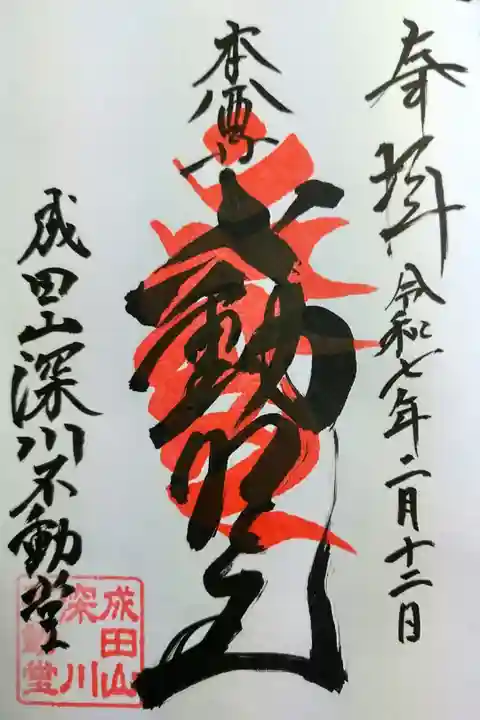 奉拝
令和七年二月十二日
本尊
不動明王
成田山深川不動堂
成田山
深川
不動堂